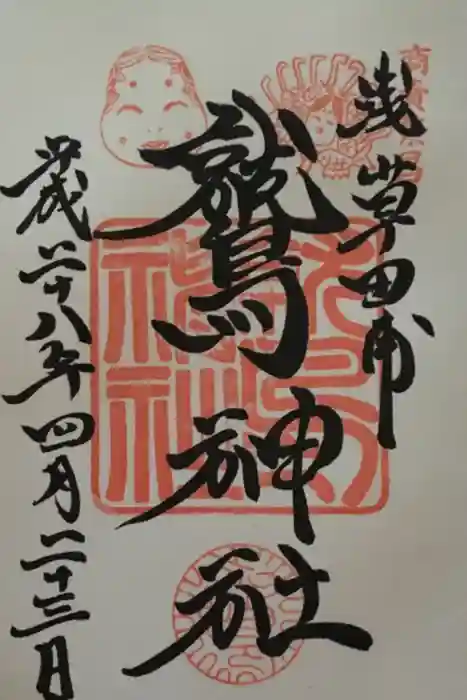 浅草田甫
鷲神社
平成二十八年四月二十三日